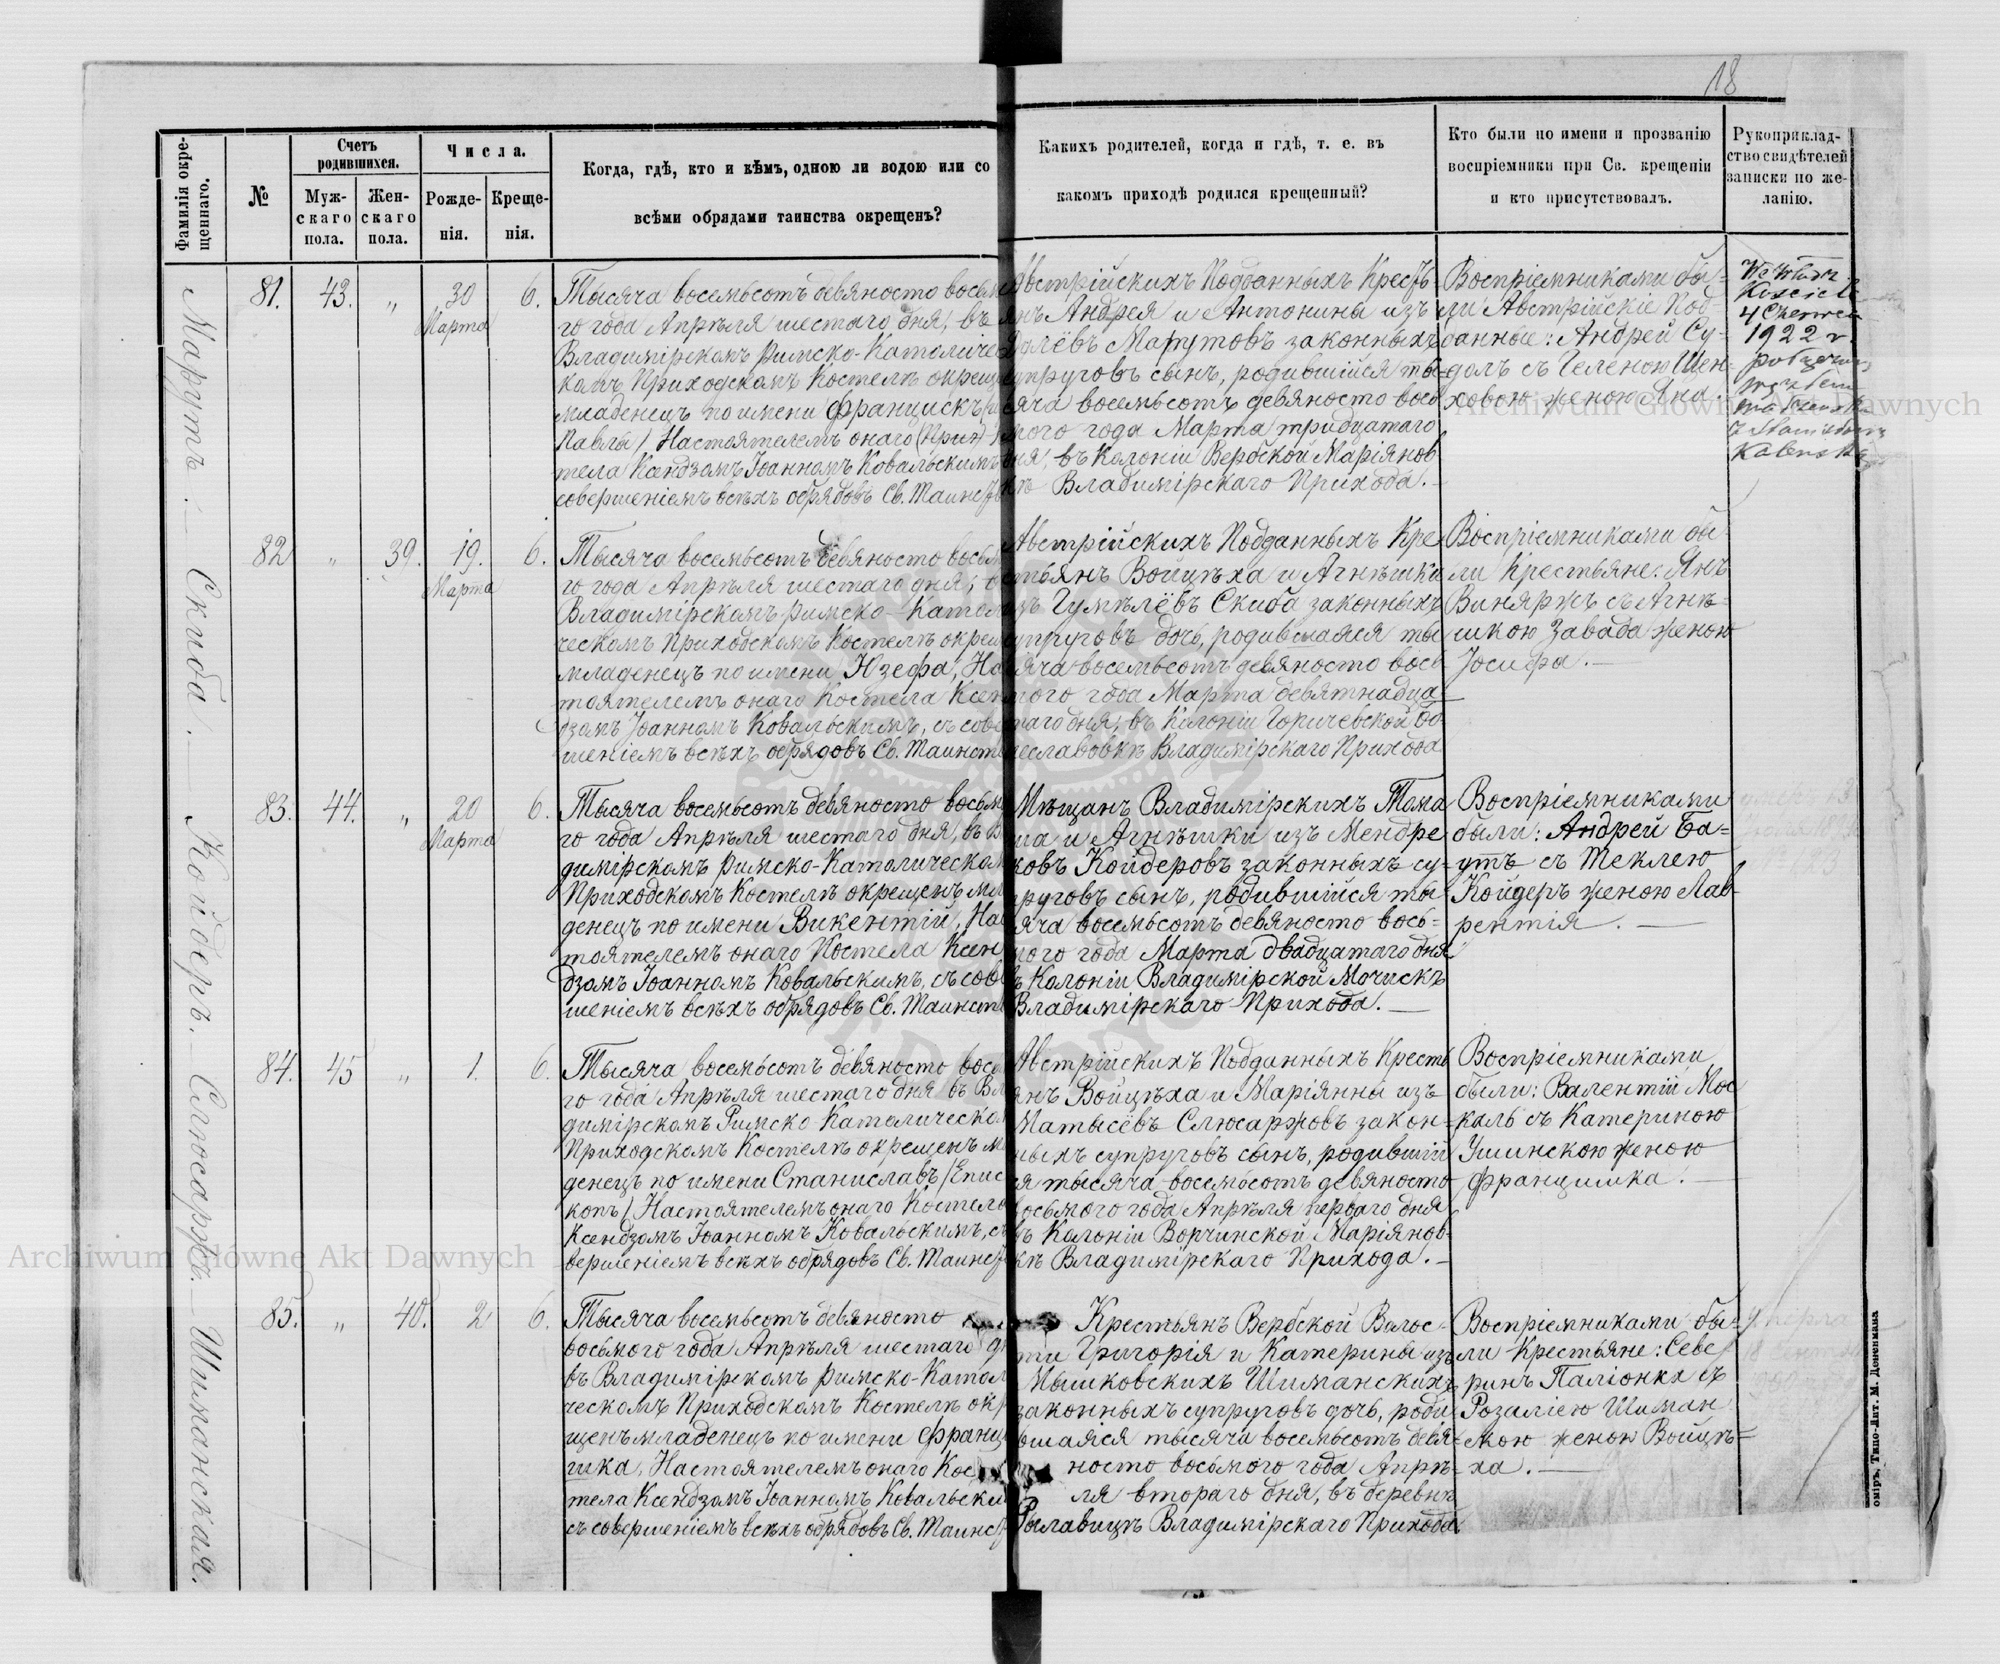 18
Фамилія окре-
щеннаго.
№
Счетъ
родившихся.
Муж-
скаго
пола.
Жен-
скаго
пола.
Числа.
Рожде-
нія.
Креще-
нія.
Когда, гдѣ, кто и кѣмъ, одною ли водою или со
всѣми обрядами таинства окрещенъ?
Каких​ъ родителей, когда и гдѣ, т. е. въ
какомъ приходѣ родился крещенный?
Кто были по имени и прозванію
воспріемники при Св. крещеніи
и кто присутствовалъ.
Рукоприклад-
ство свидѣтелей
записки по же-
ланію.
Марутъ.
81.
43.
"
30
Марта
6.
Тысяча восемьсотъ девяносто восьм
го года Апрѣля шестаго дня, въ
Владимірскомъ Римско-Католиче
комъ Приходскомъ Костелѣ окрещ
младенецъ по имени Францискъ
Павлы) Настоятелемъ онаго
тела Ксендзомъ Іоанномъ Ковальскимъ
совершеніемъ всѣхъ обрядовъ Св. Таинст
Австрійскихъ Подданныхъ Кресть
янъ Андрея и Антонины изъ
Марутовъ законныхъ
супруговъ сынъ, родившійся ты-
сяча восемьсотъ девяносто вось
мого года Марта тридцатаго
дня, въ Колоніи Вербской Маріянов
кѣ Владимірскаго Прихода.
Воспріемниками бы-
ли Австрійскіе Под
данные: Андрей Су-
долъ съ Геленою Шен-
ховою женою Яна.
We Włodz.
Kościele
4 Czerwca
1922 r.
Скиба.
82
"
39.
19.
Марта
6.
Тысяча восемьсотъ девяносто восьм
го года Апрѣля шестаго дня,
Владимірскомъ Римско-Катол
ческомъ Приходскомъ Костелѣ окре
младенецъ по имени Юзефа, Нас
тоятелемъ онаго Костела Ксен
дзомъ Іоанномъ Ковальскимъ, съ сов
шеніемъ всѣхъ обрядовъ Св. Таинст
Австрійскихъ Подданныхъ Кре
стьянъ Войцѣха и Агнѣшки
изъ Гумѣлёвъ Скиба законныхъ
супруговъ дочь, родившаяся ты
сяча восемьсотъ девяносто вось
мого года Марта девятнадца
таго дня, въ Колоніи Горичевской Бо
леславовкѣ Владимірскаго Прихода
Воспріемниками бы
ли Крестьяне: Янъ
Виняржъ съ Агнѣ-
шкою Завада женою
Іосифа.
Койдеръ.
83.
44.
"
20
Марта
6.
Тысяча восемьсотъ девяносто восьм
го года Апрѣля шестаго дня, въ Вла
димірскомъ Римско-Католическом
Приходскомъ Костелѣ окрещенъ мла
денецъ по имени Викентій, Нас
тоятелемъ онаго Костела Ксен
дзомъ Іоанномъ Ковальскимъ, съ сов
шеніемъ всѣхъ обрядовъ Св. Таинст
Мѣщанъ Владимірскихъ Тома
ша и Агнѣшки изъ Мендре
ковъ Койдеровъ законныхъ су-
пруговъ сынъ, родившійся ты
сяча восемьсотъ девяносто вось-
мого года Марта двадцатаго дня
въ Колоніи Владимірской Мочискъ
Владимірскаго Прихода.
Воспріемниками
были: Андрей Ба-
утъ съ Теклею
Койдеръ женою Лав-
рентія.
Слюсаржъ.
84.
45
"
1.
6.
Тысяча восемьсотъ девяносто вось
го года Апрѣля шестаго дня въ Вла
димірскомъ Римско Католическо
Приходскомъ Костелѣ окрещенъ мл
денецъ по имени Станиславъ (Епис
копъ) Настоятелемъ онаго Костела
Ксендзомъ Іоанномъ Ковальскимъ, съ
вершеніемъ всѣхъ обрядовъ Св. Таинст
Австрійскихъ Подданныхъ Кресть
янъ Войцѣха и Маріянны изъ
Матысёвъ Слюсаржовъ закон-
ныхъ супруговъ сынъ, родившій
ся тысяча восемьсотъ девяносто
восьмого года Апрѣля перваго дня
въ Колоніи Ворчинской Маріянов
кѣ Владимірскаго Прихода.
Воспріемниками
были: Валентій Мос
каль съ Катериною
Ушинскою женою
Францишка.
Шиманская.
85.
"
40.
2
6.
Тысяча восемьсотъ девяносто
восьмого года Апрѣля шестаго дн
въ Владимірскомъ Римско-Катол
ческомъ Приходскомъ Костелѣ окр
щенъ младенецъ по имени Франц
шка, Настоятелемъ онаго Кос
тела Ксендзомъ Іоанномъ Ковальски
съ совершеніемъ всѣхъ обрядовъ Св. Таинст
Крестьянъ Вербской Волос-
ти Григорія и Катерины изъ
Мышковскихъ Шиманскихъ
законныхъ супруговъ дочь, роди
вшаяся тысяча восемьсотъ девя-
носто восьмого года Апрѣ-
ля втораго дня, въ деревнѣ
Рылавицѣ Владимірскаго Прихода
Воспріемниками бы-
ли Крестьяне: Севе
ринъ Паліонка съ
Розаліею Шиман
скою женою Войцѣ-
ха.
оміръ, Типо-Лит. М. Дененмана
Archiwum Główne Akt Dawnych
Archiwum Główne Akt Dawnych